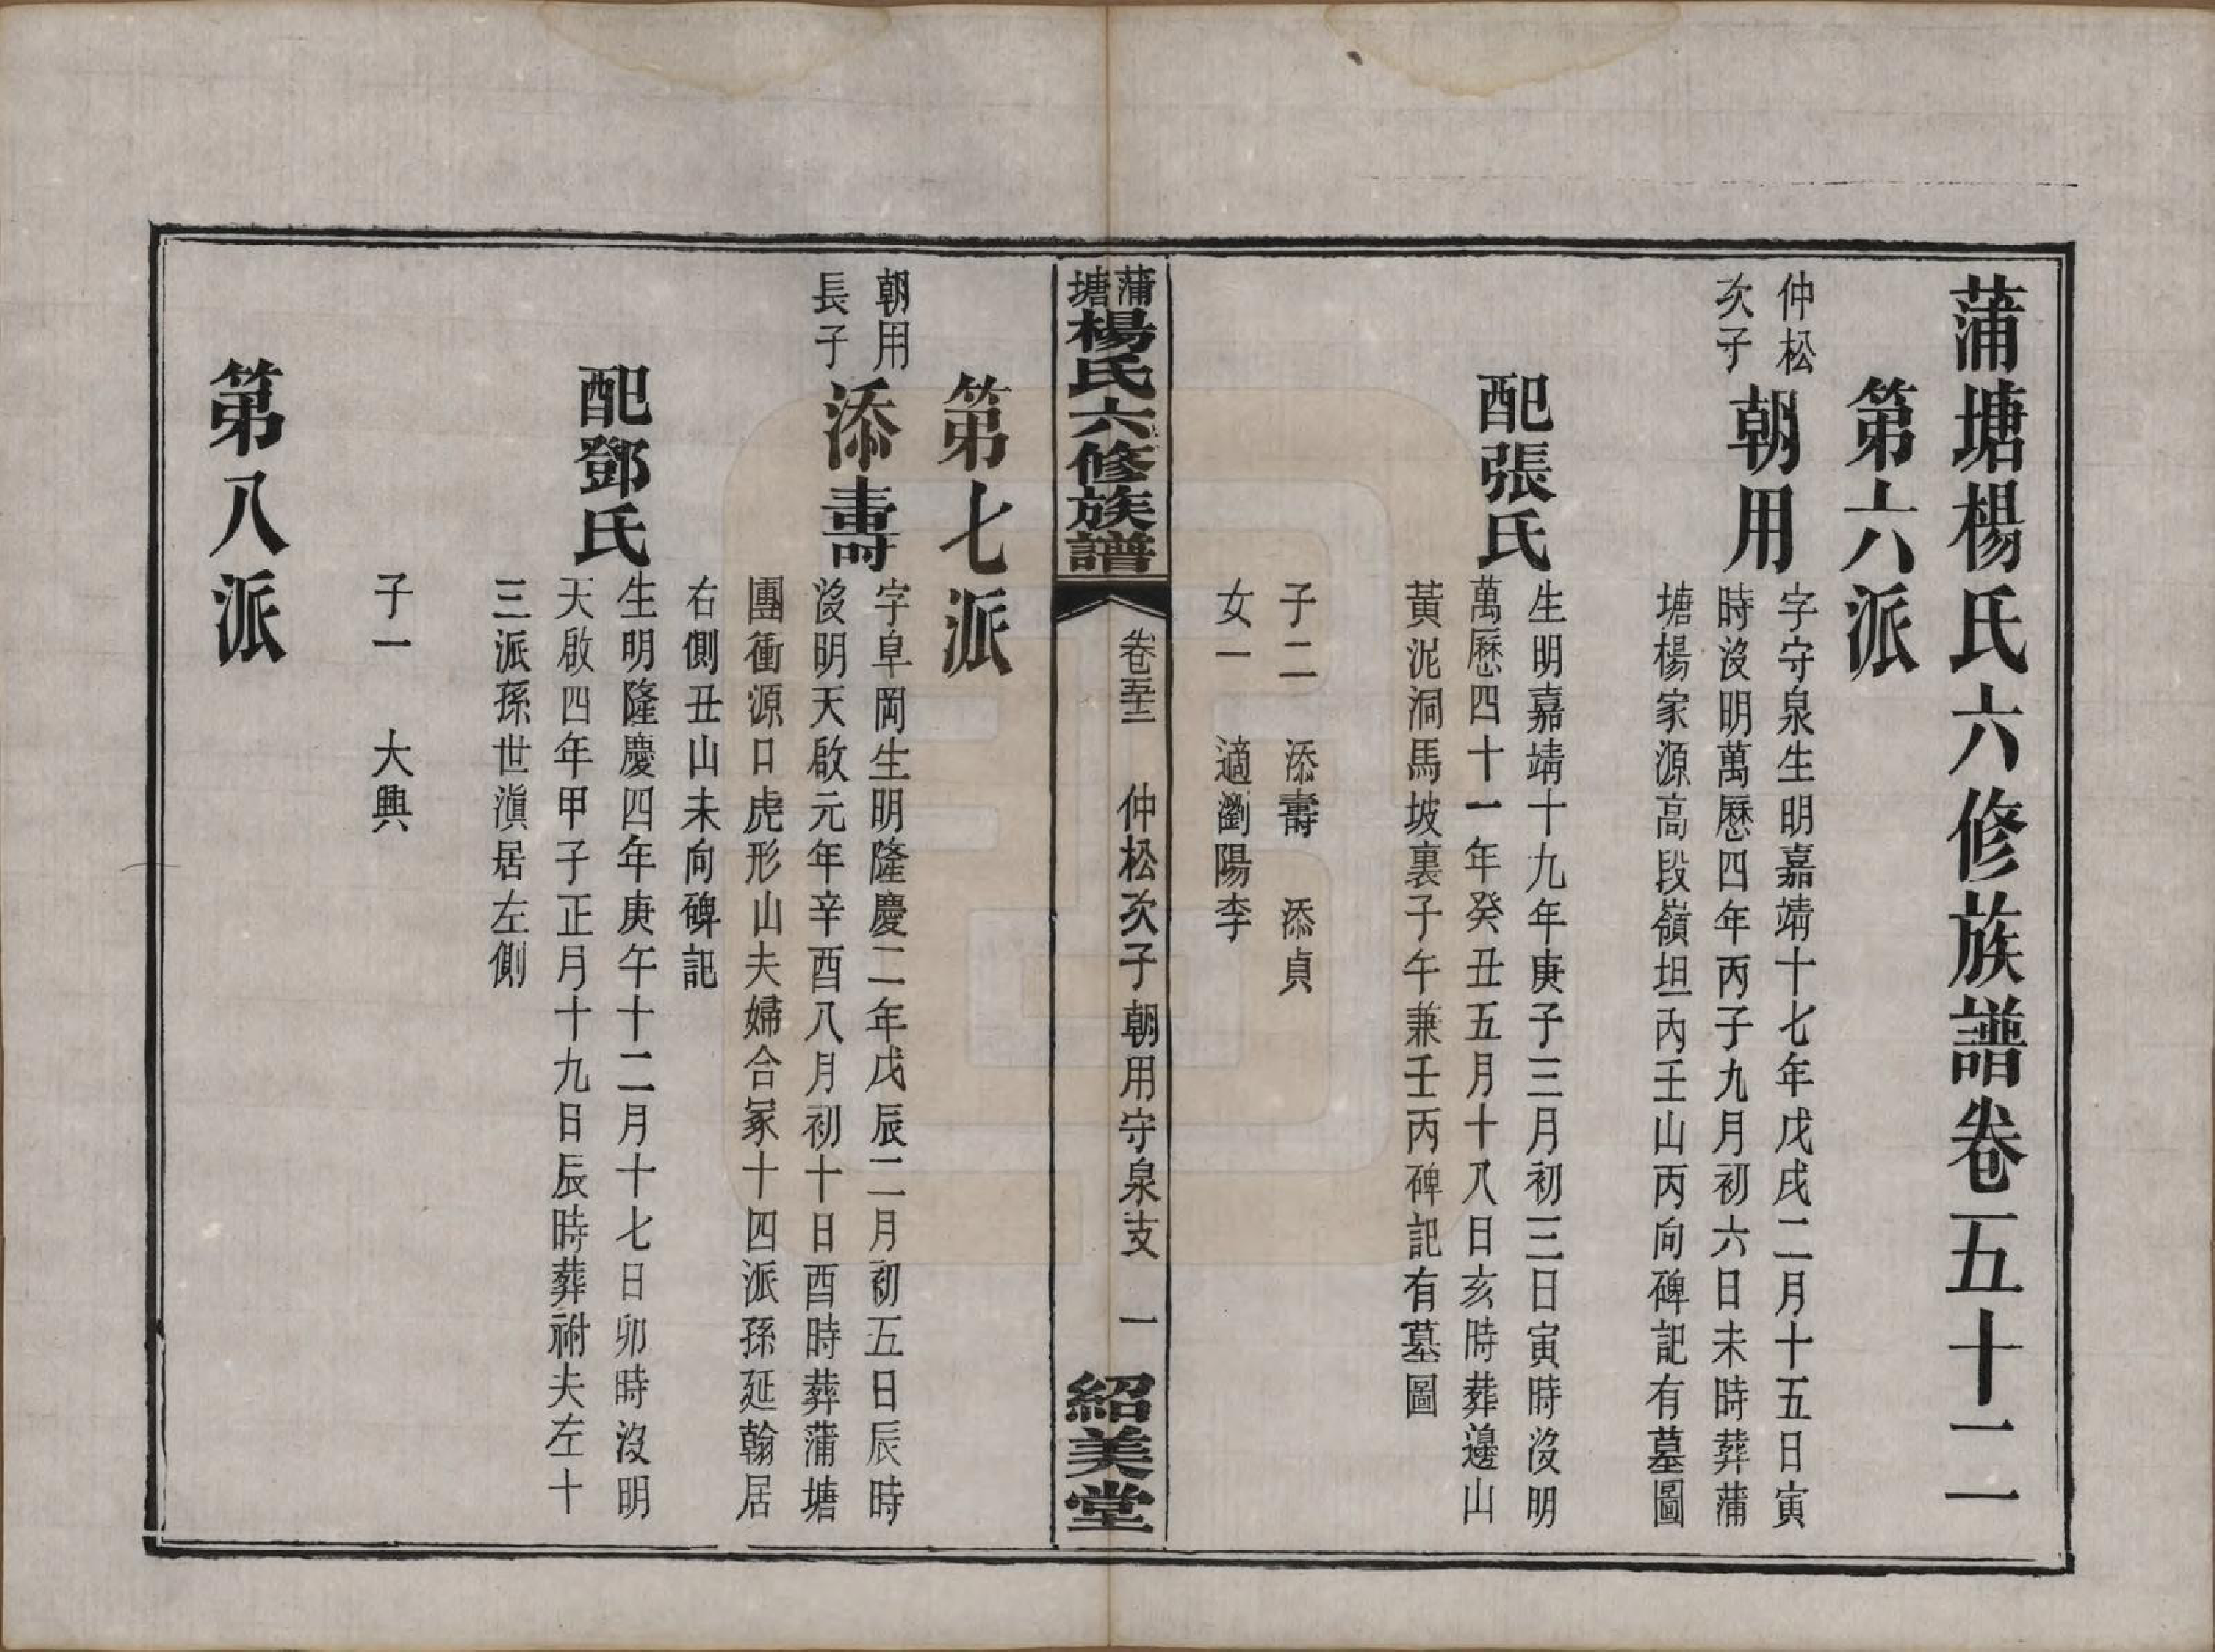 蒲塘楊氏六修族譜卷五十二
第六派
仲松
次子
朝用
字守泉生明嘉靖十七年戊戌二月十五日寅
時沒明萬歷四年丙子九月初六日未時葬蒲
塘楊家源高段嶺坦丙壬山丙向碑記有墓圖
配張氏
生明嘉靖十九年庚子三月初三日寅時沒明
萬歷四十一年癸丑五月十八日亥時葬邊山
黃泥洞馬坡裏子午兼壬丙碑記有墓圖
子二　添壽　添貞
女一　適瀏陽李
蒲塘楊氏六修族譜　卷五十二　仲松次子朝用守泉支　一　紹美堂
第七派
朝用
長子
添壽
字阜岡生明隆慶二年戊辰二月初五日辰時
沒明天啟元年辛酉八月初十日酉時葬蒲塘
團衝源口虎形山夫婦合冢十四派孫延翰居
右側丑山未向碑記
配鄧氏
生明隆慶四年庚午十二月十七日卯時沒明
天啟四年甲子正月十九日辰時葬祔夫左十
三派孫世滇居左側
子一　大興
第八派